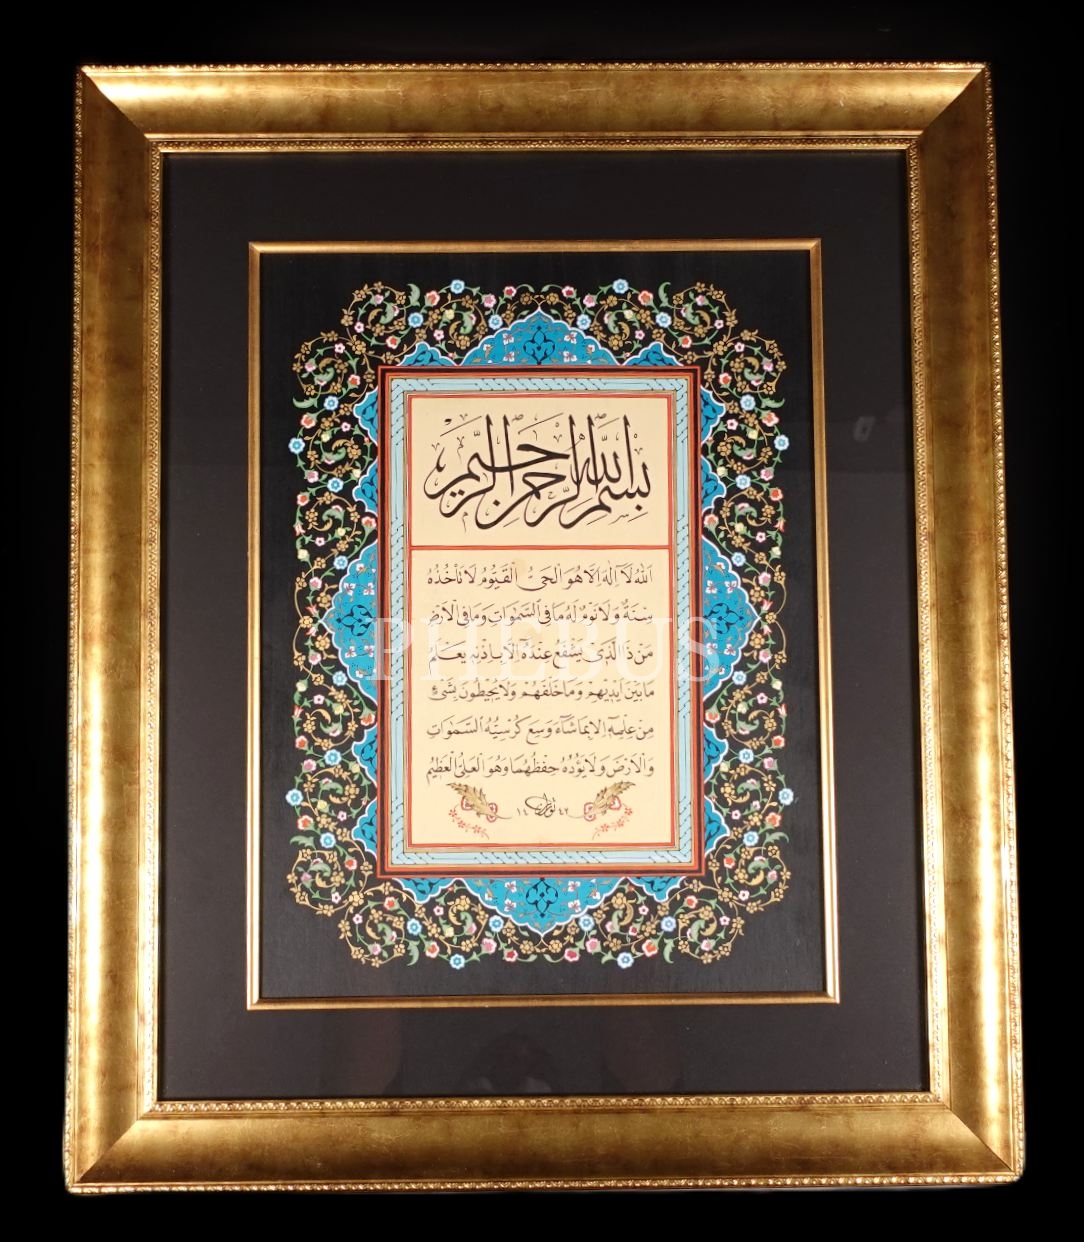 بِسْمِ اللهِ الرَّحْمٰنِ الرَّحِيمِ
اَللهُ لَٓا اِلٰهَ اِلَّا هُوَ الْحَيُّ الْقَيُّومُ لَا تَاْخُذُهُ
سِنَةٌ وَلَا نَوْمٌ لَهُ مَا فِي السَّمٰوَاتِ وَمَا فِي الْاَرْضِ
مَنْ ذَا الَّذِي يَشْفَعُ عِنْدَهُٓ اِلَّا بِاِذْنِهِ يَعْلَمُ
مَا بَيْنَ اَيْدِيهِمْ وَمَا خَلْفَهُمْ وَلَا يُحِيطُونَ بِشَيْءٍ
مِنْ عِلْمِهِٓ اِلَّا بِمَا شَٓاءَ وَسِعَ كُرْسِيُّهُ السَّمٰوَاتِ
وَالْاَرْضَ وَلَا يَؤُ۫دُهُ حِفْظُهُمَا وَهُوَ الْعَلِيُّ الْعَظِيمُ
PHEBUS